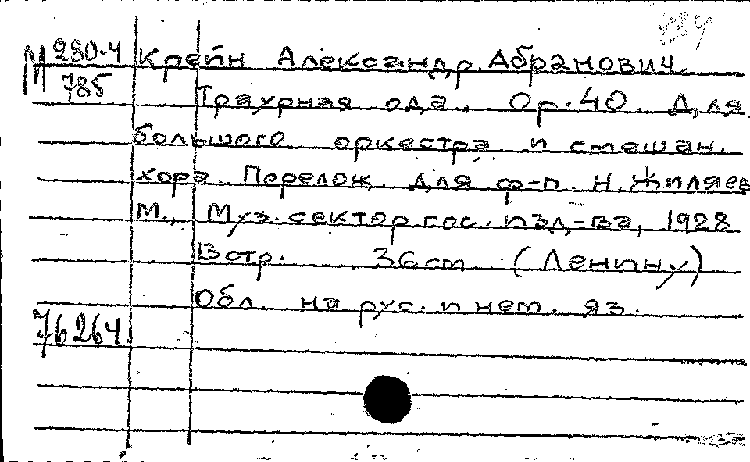 М 280-4 Крейн Александр Абрамович
785
Траурная ода. Op. 40. Для
большого оркестра и смешан.
хора. Перелож. для ф-п. Н. Жиляев
М., Муз. сектор гос. изд-ва, 1928
13 стр. 36 cm (Ленину)
Обл. на рус. и нем. яз.
76264